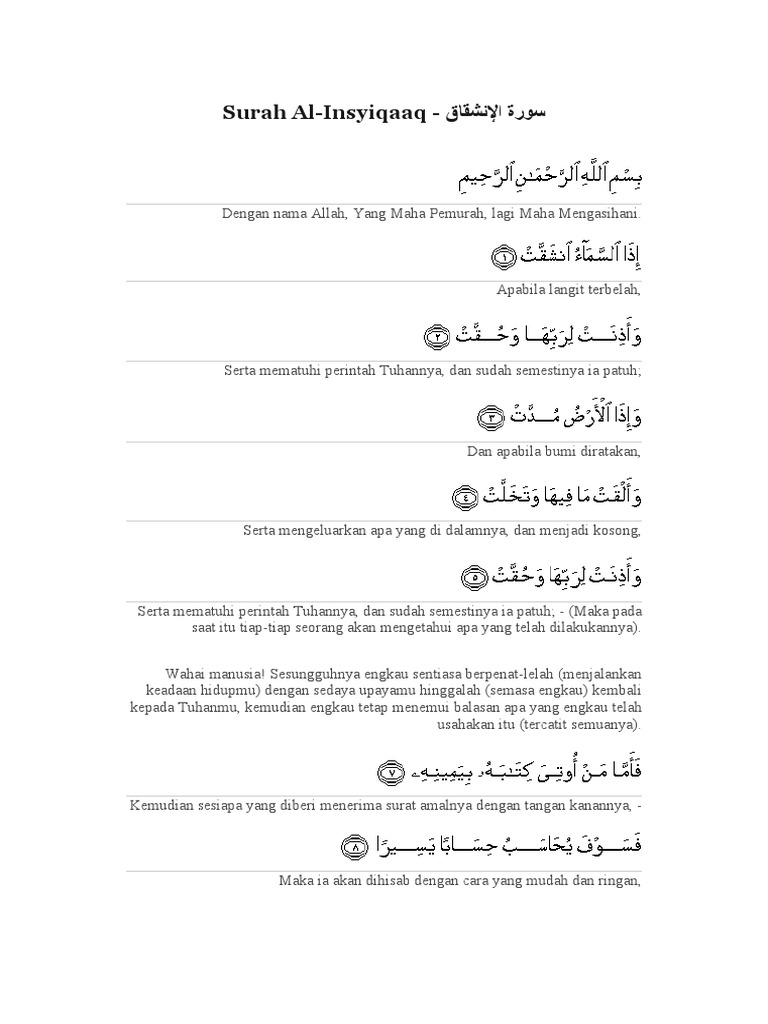 Surah Al-Insyiqaaq - سورة الإنشقاق
بِسْمِ ٱللَّهِ ٱلرَّحْمَـٰنِ ٱلرَّحِيمِ
Dengan nama Allah, Yang Maha Pemurah, lagi Maha Mengasihani.
إِذَا ٱلسَّمَآءُ ٱنشَقَّتْ ١
Apabila langit terbelah,
وَأَذِنَـــتْ لِرَبِّهَـــا وَحُـــقَّتْ ٢
Serta mematuhi perintah Tuhannya, dan sudah semestinya ia patuh;
وَإِذَا ٱلْأَرْضُ مُـــدَّتْ ٣
Dan apabila bumi diratakan,
وَأَلْقَتْ مَا فِيهَا وَتَخَلَّتْ ٤
Serta mengeluarkan apa yang di dalamnya, dan menjadi kosong,
وَأَذِنَتْ لِرَبِّهَا وَحُقَّتْ ٥
Serta mematuhi perintah Tuhannya, dan sudah semestinya ia patuh; - (Maka pada
saat itu tiap-tiap seorang akan mengetahui apa yang telah dilakukannya).
Wahai manusia! Sesungguhnya engkau sentiasa berpenat-lelah (menjalankan
keadaan hidupmu) dengan sedaya upayamu hinggalah (semasa engkau) kembali
kepada Tuhanmu, kemudian engkau tetap menemui balasan apa yang engkau telah
usahakan itu (tercatit semuanya).
فَأَمَّا مَنْ أُوتِىَ كِتَـٰبَهُۥ بِيَمِينِهِۦ ٧
Kemudian sesiapa yang diberi menerima surat amalnya dengan tangan kanannya, -
فَسَـــوْفَ يُحَاسَـــبُ حِسَـــابًا يَسِـــيرًا ٨
Maka ia akan dihisab dengan cara yang mudah dan ringan,